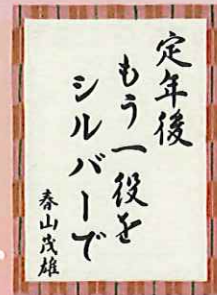 定年後
もう一役を
シルバーで
春山茂雄